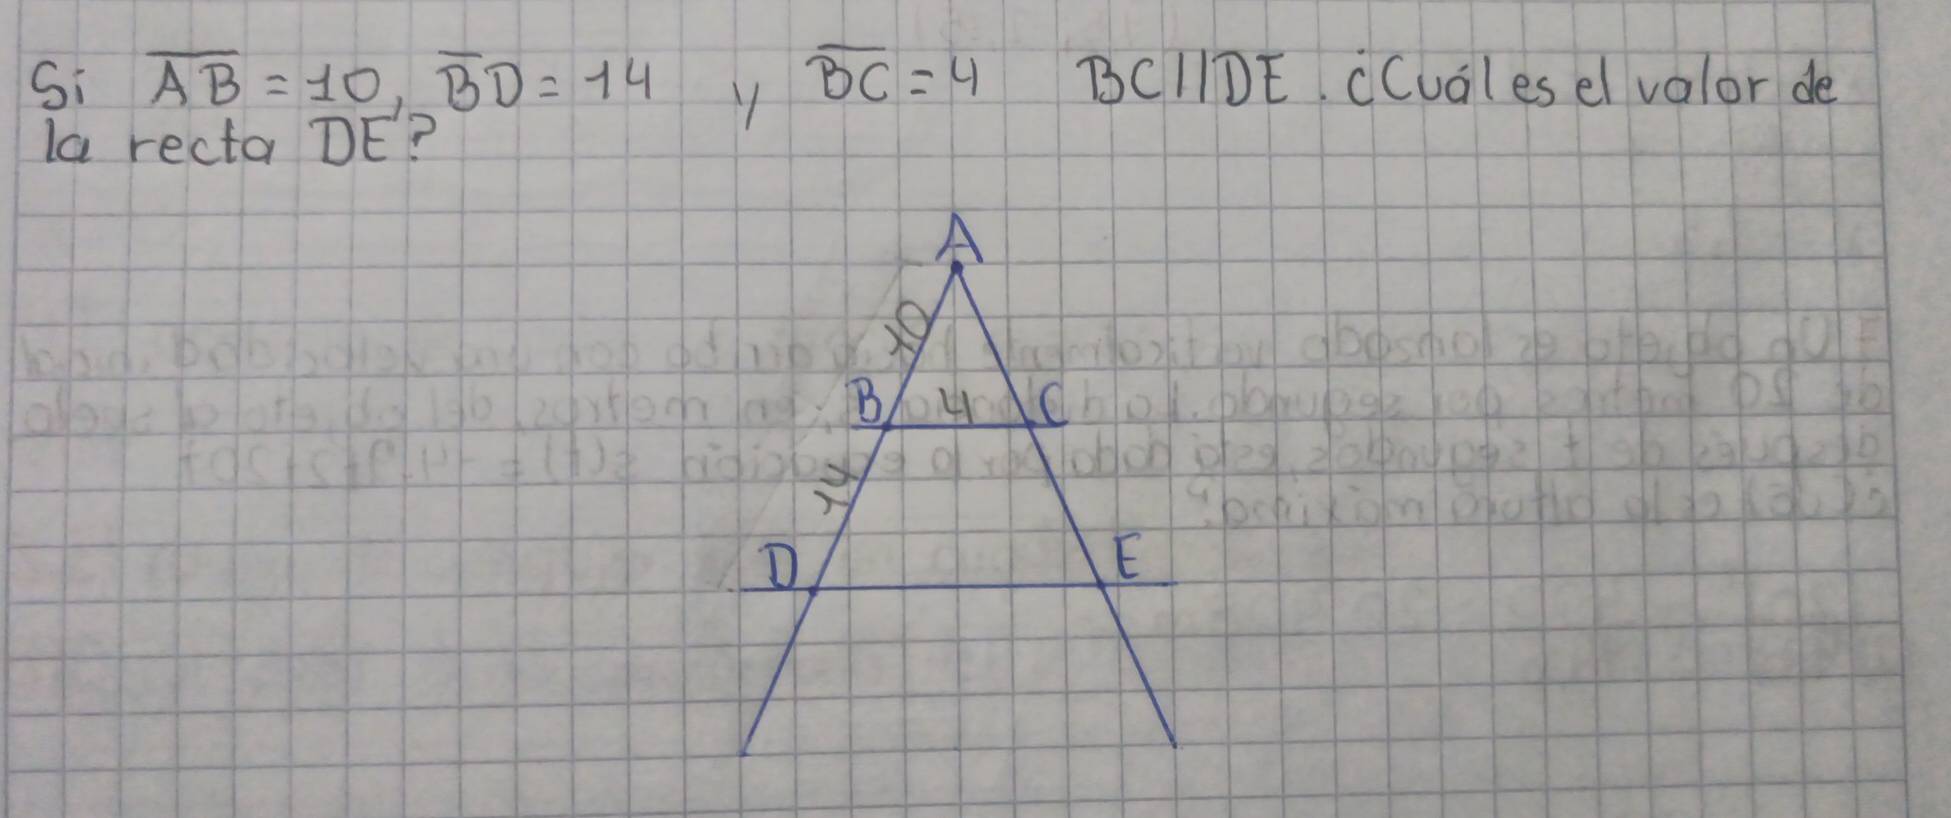 Si AB = 10, BD = 14 y BC = 4 BC || DE. ¿Cuál es el valor de
la recta DE?
A
10
B 4 C
14
D E